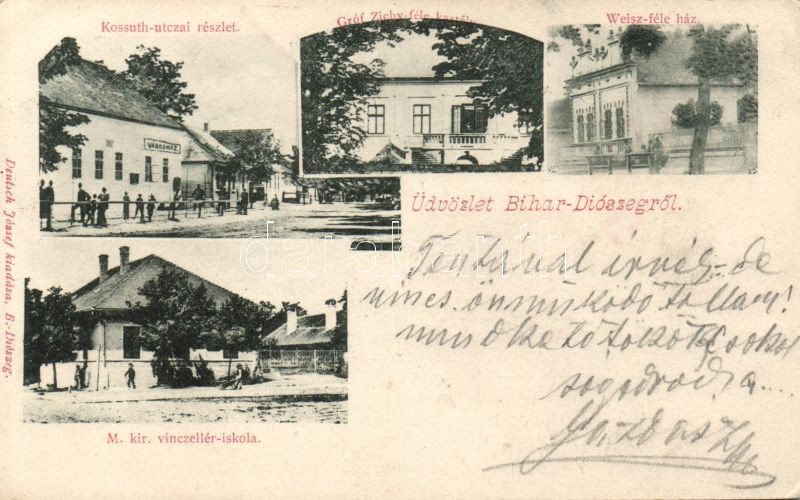 Kossuth-utczai részlet.
Gróf Zichy-féle kastély.
Weisz-féle ház.
VÁROSHÁZ
Üdvözlet Bihar-Diószegről.
Tentával írnék de
nincs önműködő tollam!
mindkettőtöket sokszor
M. kir. vinczellér-iskola.
Deutsch József kiadása, B.-Diószeg.
darabanth